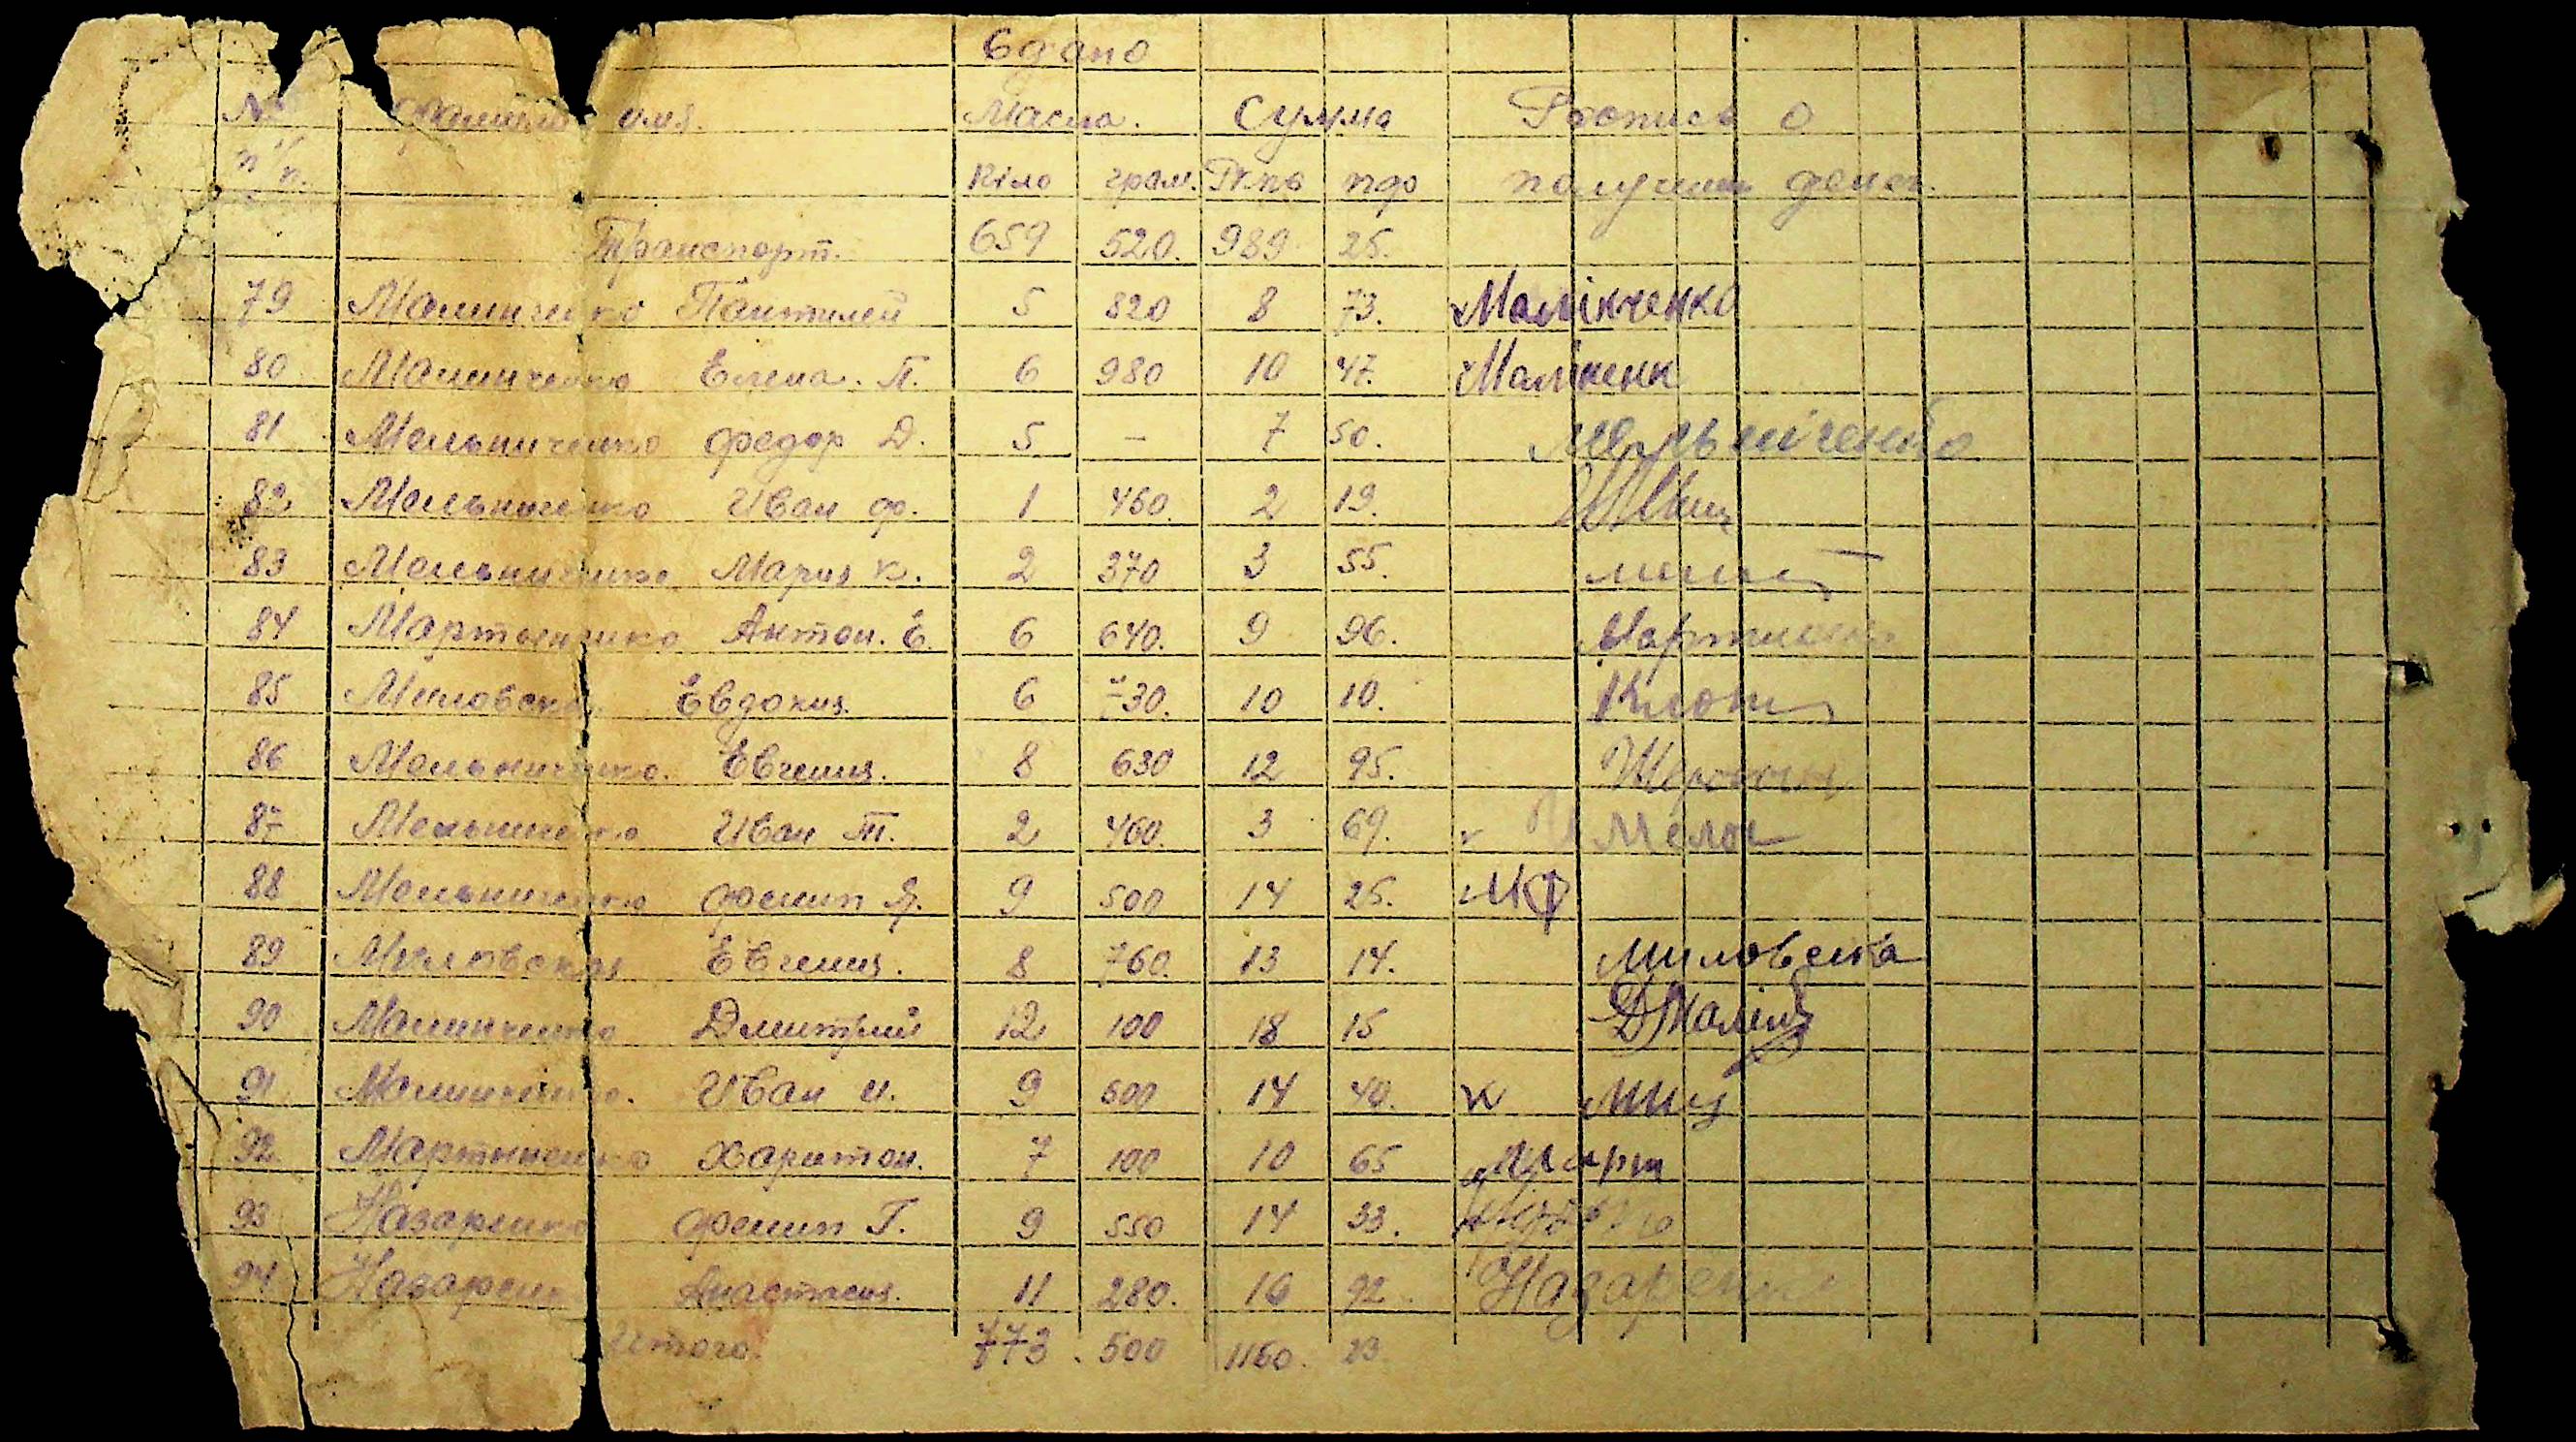 Сдано
№ Фамилия имя. Масла. Сумма Роспись о
п/п. Кіло грам. Рубл коп получении денег.
Транспорт. 659 520. 989 25.
79 Малинченко Пантилей 5 820 8 73. Малінченко
80 Малинченко Елена. П. 6 980 10 47. Малінченк
81 Мельниченко Федор Д. 5 — 7 50. Мельніченко
82 Мельниченко Иван Ф. 1 460. 2 19.
83 Мельниченко Мария К. 2 370 3 55.
84 Мартыненко Антон. Е. 6 640. 9 96. Мартиненко
85 Миловска Евдокия. 6 730. 10 10.
86 Мельниченко. Евгения. 8 630 12 95.
87 Мельниченко Иван Т. 2 460. 3 69. Мелн
88 Мельниченко Филип Я. 9 500 14 25. МФ
89 Миловская Евгения. 8 760. 13 14. Миловска
90 Малинченко Дмитрий 12 100 18 15 ДМалін
91 Малинченко. Иван И. 9 600 14 40.
92 Мартыненко Харитон. 7 100 10 65 Март
93 Назаренко Филип Г. 9 550 14 33.
94 Назаренк Анастасия. 11 280. 16 92 Назаренк
Итого. 773. 500 1160. 23